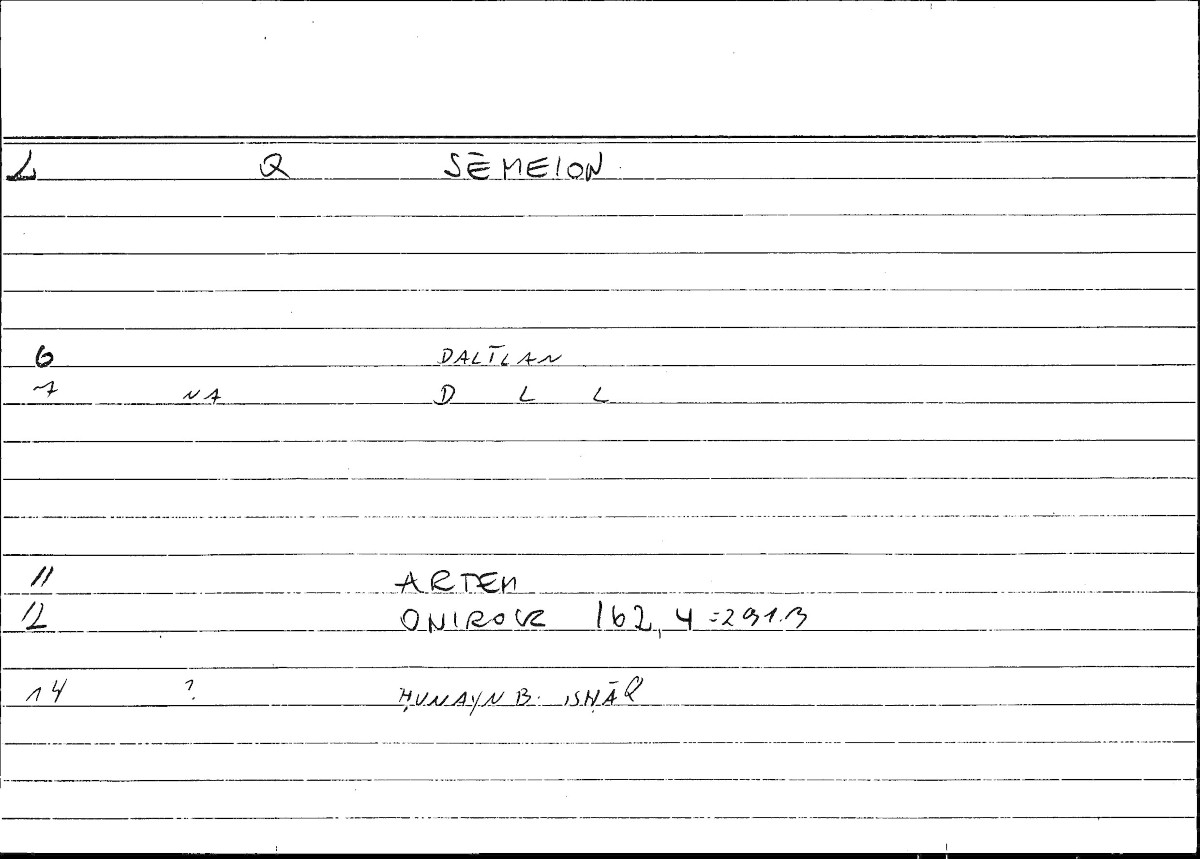 2 Q SĒMEION
6 DALĪLAN
7 NA D L L
11 ARTEM
12 ONIROCR 162,4 = 291.13
14 ? ḤUNAYN B. ISḤĀQ